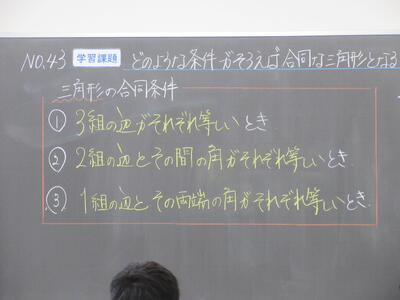 NO.43 学習課題 どのような条件がそろえば合同な三角形となる
三角形の合同条件
① 3組の辺がそれぞれ等しいとき
② 2組の辺とその間の角がそれぞれ等しいとき
③ 1組の辺とその両端の角がそれぞれ等しいとき